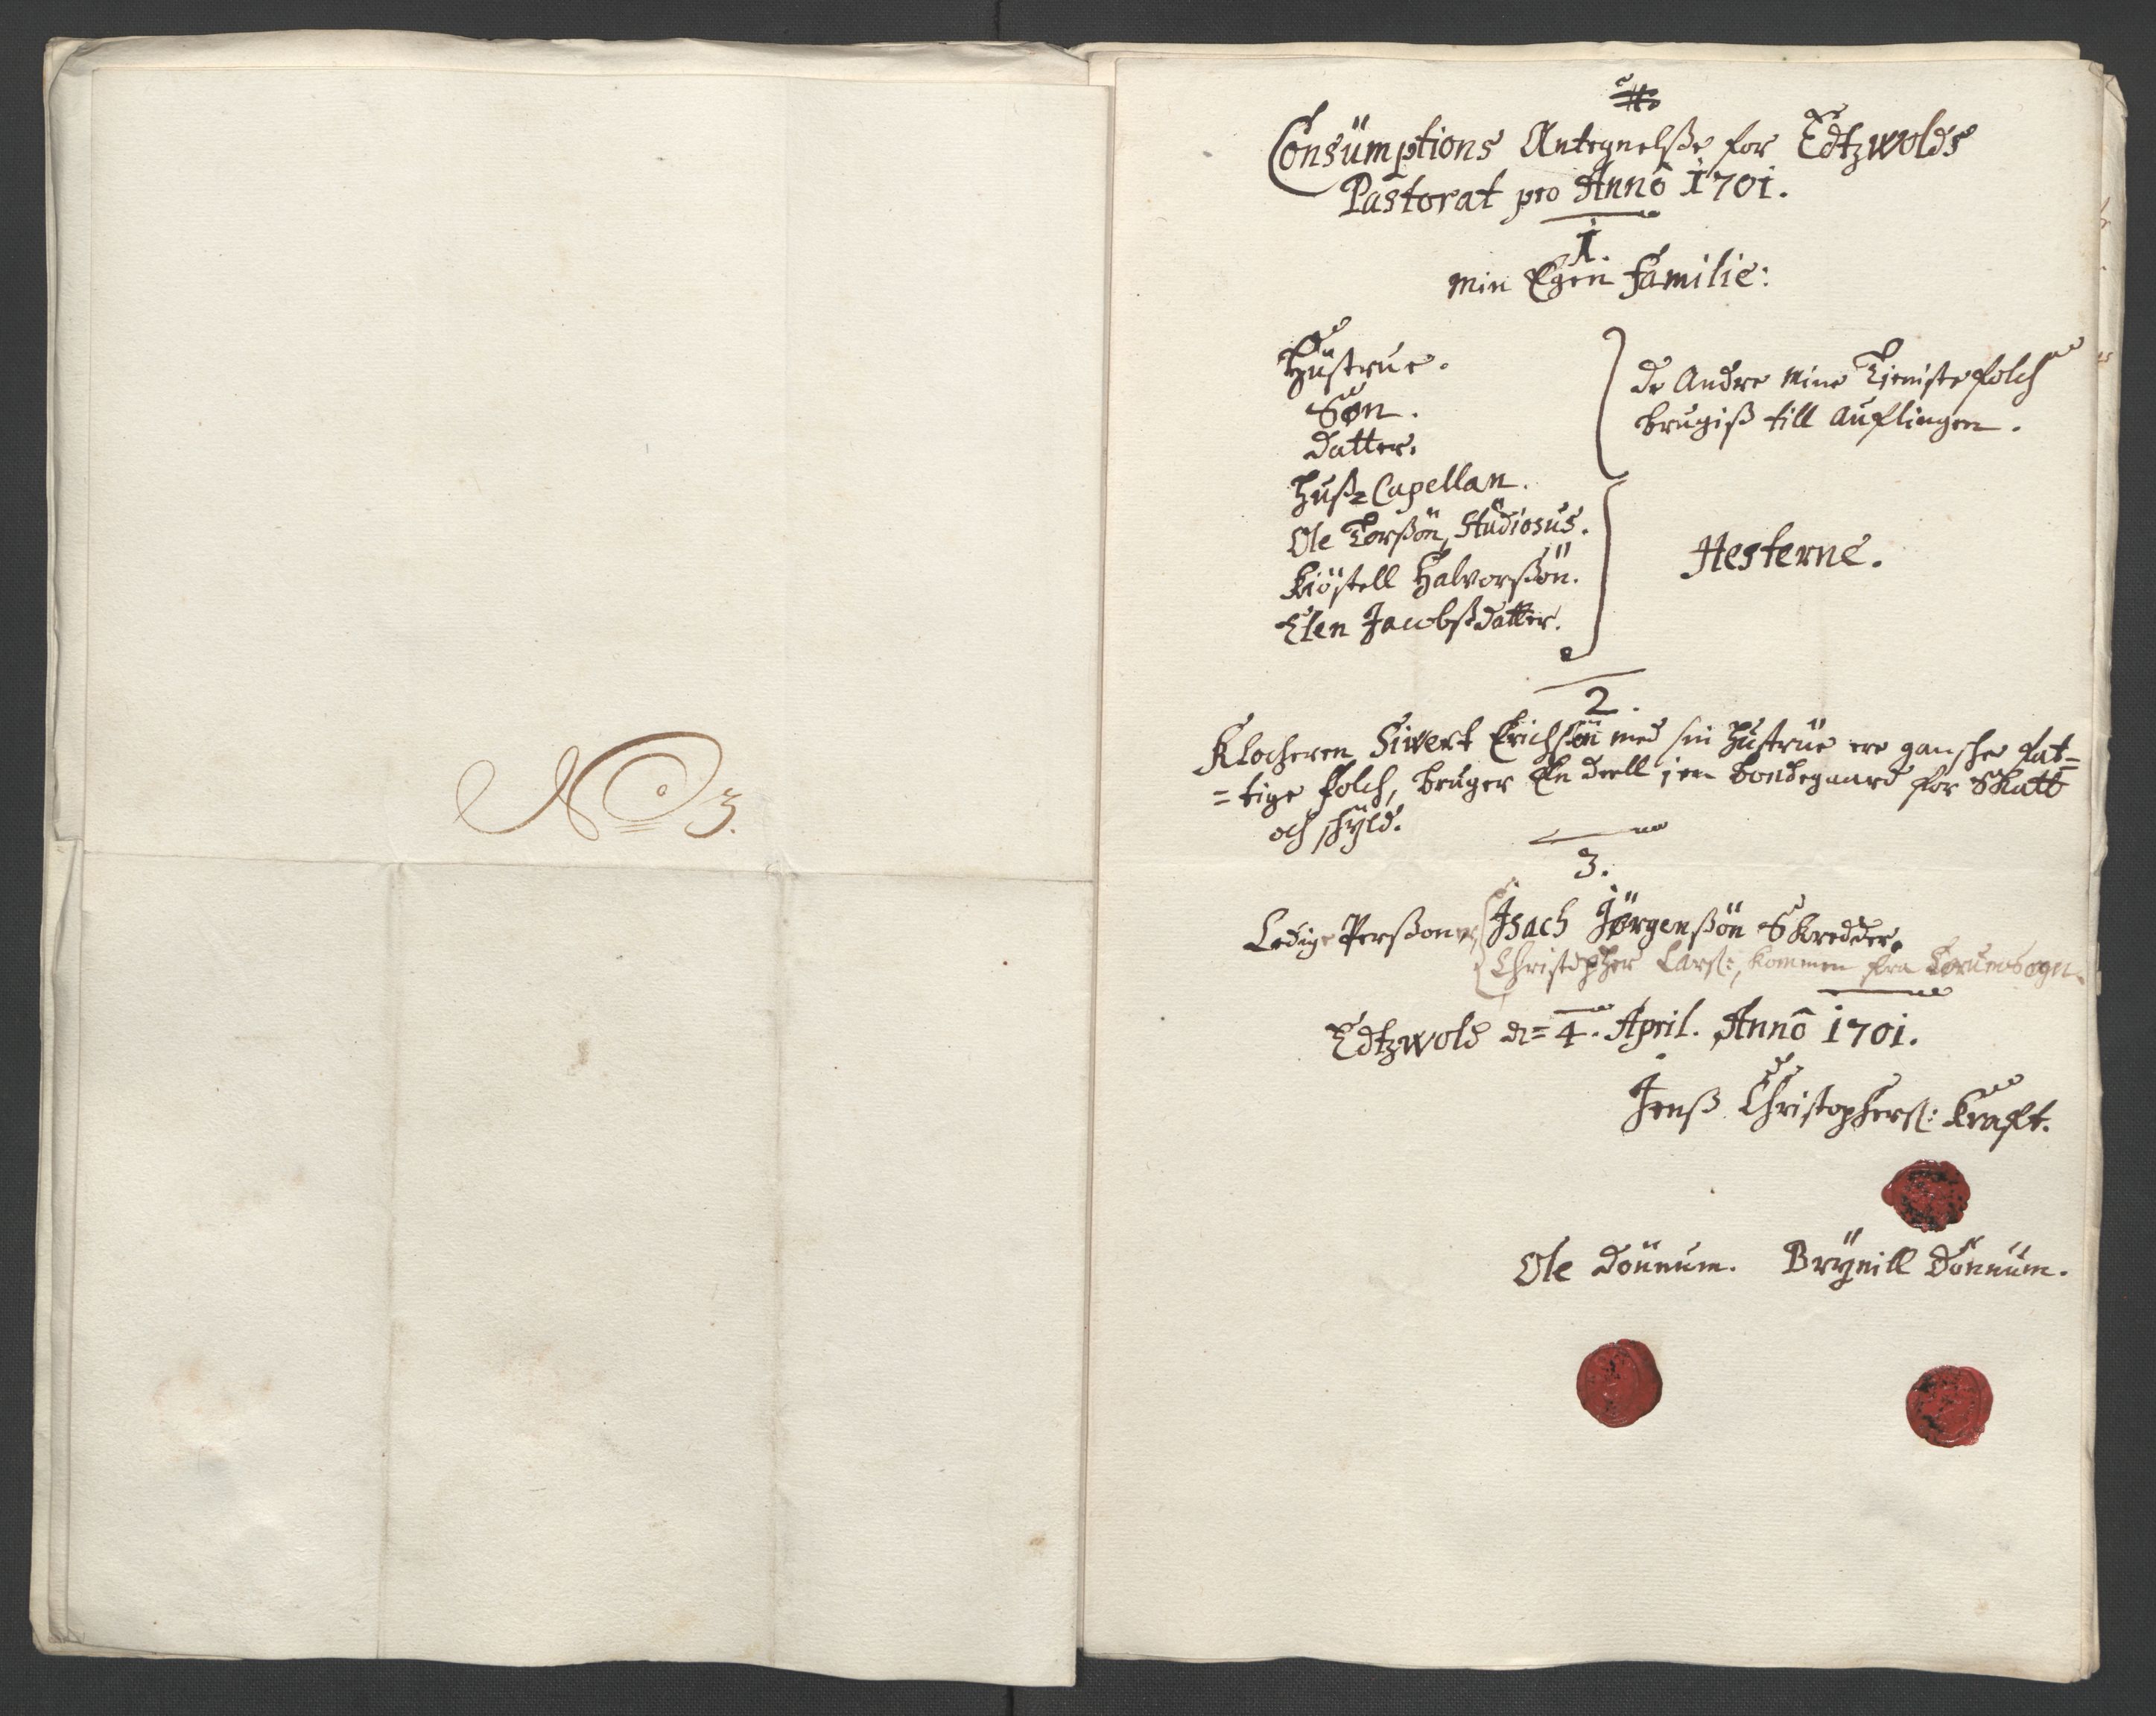 No 3.
Consümptions Antegnelsse for Edtzwolds
Pastorat pro Annô 1701.
1.
Min Egen Familie:
Hüstrue.
Søn.
Datter.
Huss= Capellan.
Ole Torssön, Stüdiosus.
Kiöstell Halvorssön.
Elen Jacobssdatter.
de Andre mine Tienistefolch
brugiss till Auflingen.
Hesterne.
2.
Klocheren Siwert Erichssön med sin Hüstrüe ere gansche fat=
=tige folch, bruger En deell i en bondegaard for Skatt
och schyld.
3.
Ledige Perssoner, Isach Jörgenssön Skredder.
Christopher Larss:, kommen fra
Edtzwold d= 4. April. Annô 1701.
Jenss Christopherss: Kraft.
Ole Dönnum. Brÿnill Dönnüm.